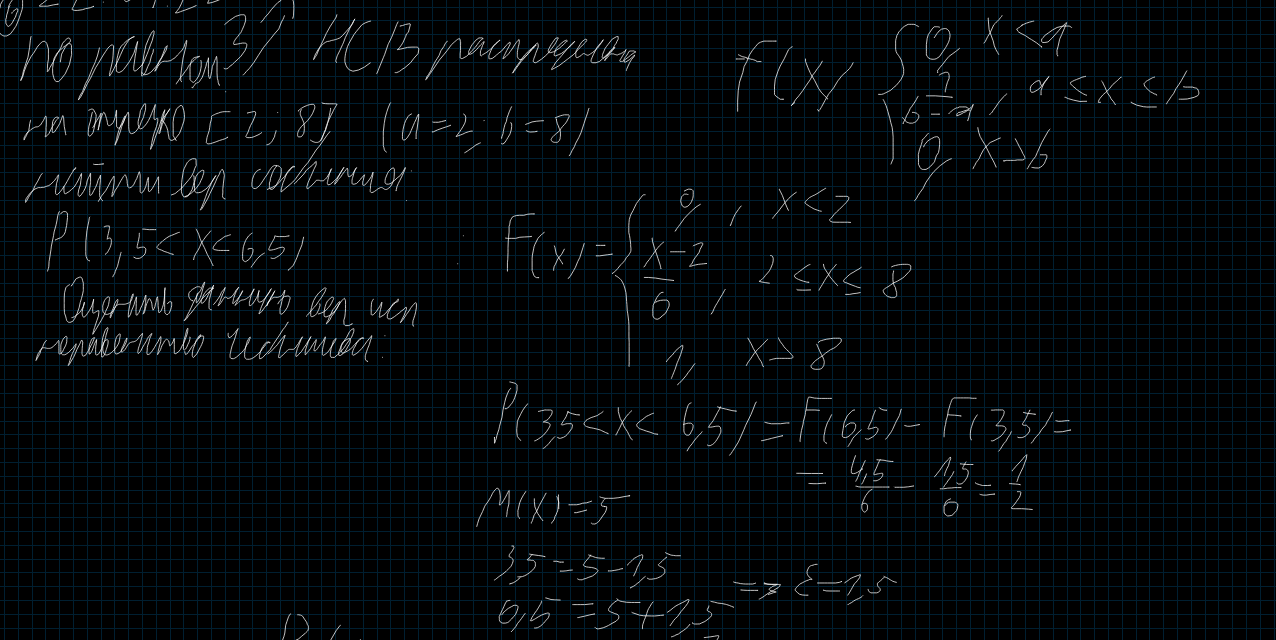 3) НСВ распределена
на отрезке [2; 8] (a=2; b=8)
найти вер события:
P(3,5<X<6,5)
Оценить данную вер исп
неравенство Чебышева:
f(x) { 0, x<a
1/(b-a), a ≤ x ≤ b
0, x>b
F(x) = { 0, x<2
(x-2)/6, 2 ≤ x ≤ 8
1, x>8
P(3,5<x<6,5) = F(6,5) - F(3,5) =
= 4,5/6 - 1,5/6 = 1/2
M(X) = 5
3,5 = 5-1,5
6,5 = 5+1,5 => ε=1,5